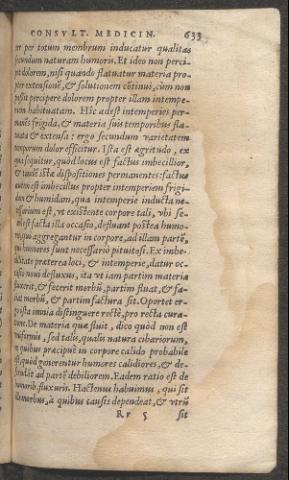 CONSVLT. MEDICIN. 633
per totum membrum inducatur qualitas
secundum naturam humoris. Et ideo non perci
pit dolorem, nisi quando statuatur materia pro-
pter extensionẽ, & solutionem cõtinui, cùm non
possit percipere dolorem propter illam intempe-
riem habituatam. Hîc adest intemperies per-
frigida, & materia suis temporibus sta-
tuta & extensa: ergo secundum varietatem
temporum dolor efficitur. Ista est ægritudo, ex
qua sequitur, quòd locus est factus imbecillior,
& tandẽ istæ dispositiones permanentes: factus
autem est imbecillus propter intemperiem frigi-
dam & humidam, qua intemperie inducta ne-
cessarium est, vt existente corpore tali, vbi se-
mel est facta illa occasio, defluant posteà humo-
res, qui aggregantur in corpore, ad illam partẽ,
qui humores sunt necessariò pituitosi. Ex imbe-
cillitate præterea loci, & intemperie, datur oc-
casio noui defluxus, ita vt iam partim materia
fluxerit, & fecerit morbũ, partim fluat, & fa-
ciat morbũ, & partim factura sit. Oportet er-
go ista omnia distinguere rectè, pro recta cura-
tione. De materia quæ fluit, dico quòd non est
vniformis, sed talis, qualis natura cibariorum,
in quibus præcipuè in corpore calido probabile
est, quòd generentur humores calidiores, & de-
fluant ad partẽ debiliorem. Eadem ratio est de
humorib. fluxuris. Hactenus habuimus, qui sit
morbus, à quibus causis dependeat, & vtrũ
Rr 5 sit